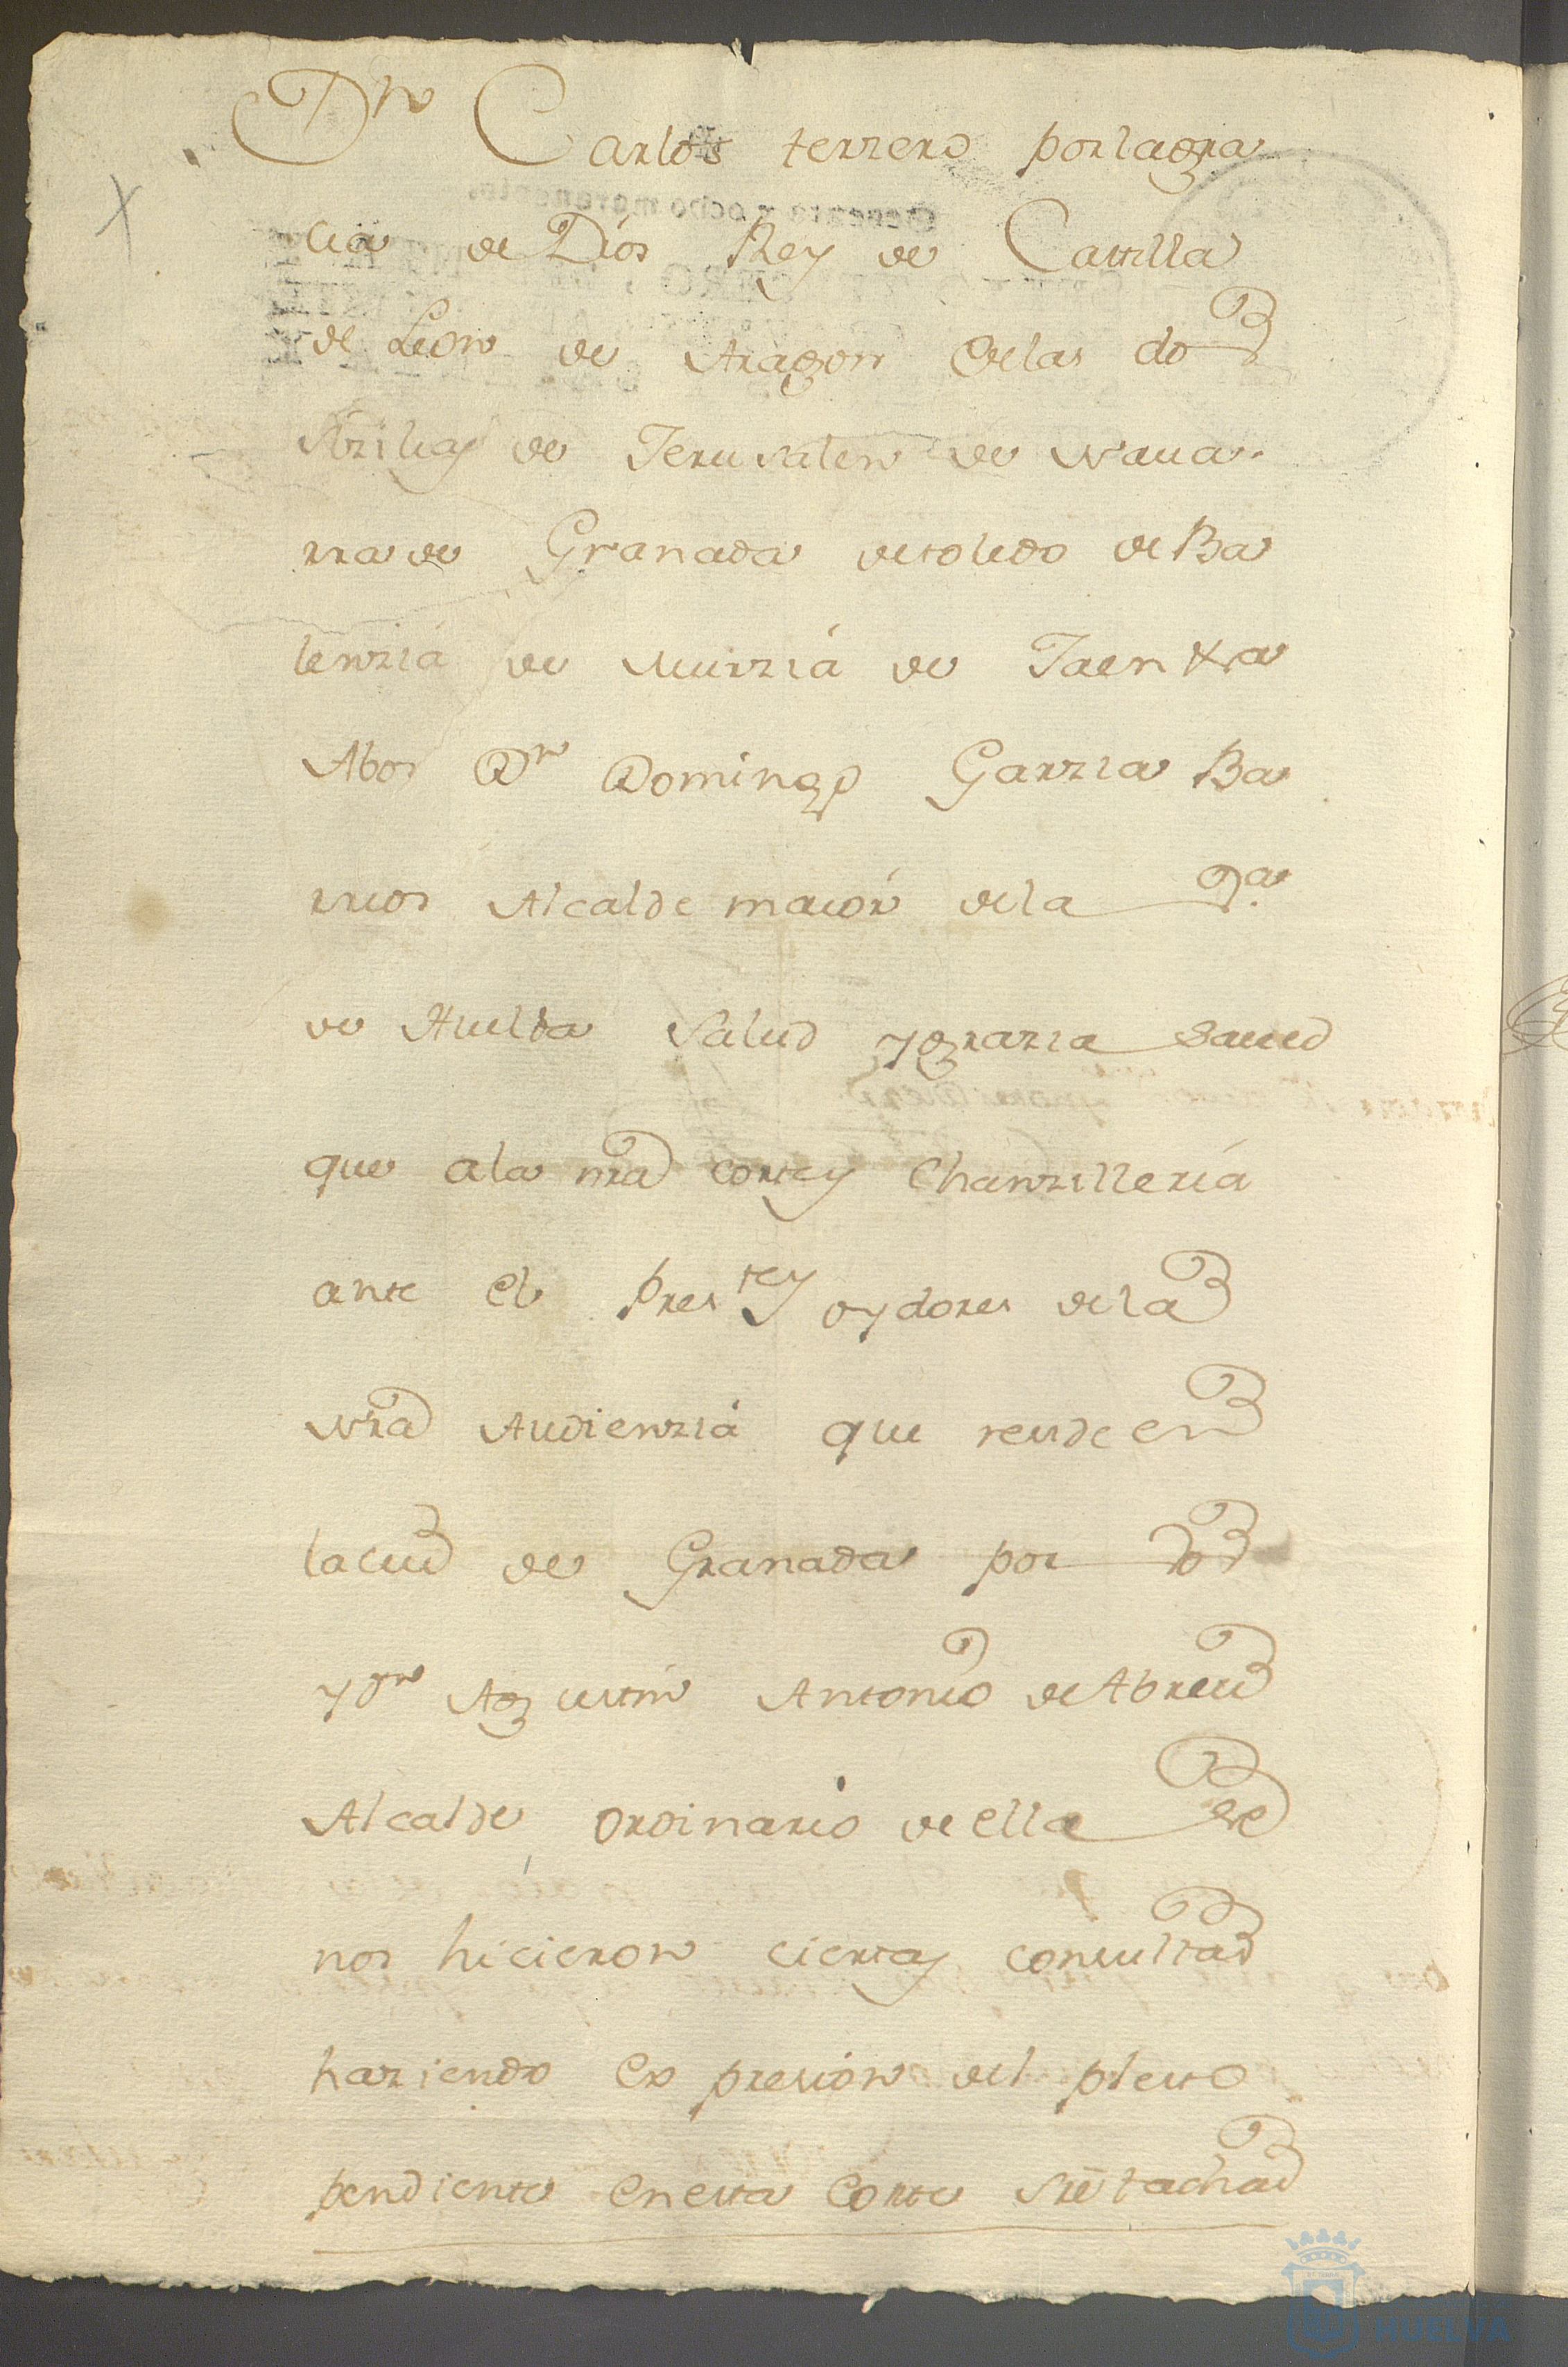 Dn Carlos terzero por la gra
cia de Dios Rey de Castilla
de Leon de Aragon de las dos
Sizilias de Jerusalen de Nauar
rra de Granada de toledo de Ba
lenzia de Murzia de Jaen &a
A bos Dn Domingo Garzia Ba
rrios Alcalde maior de la Va.
de Huelba Salud y grazia Saued
que a la nra Corte y Chanzilleria
ante el Preste y oydores de la
Nra Audienzia que reside en
la ciud de Granada por bos
y Dn Agustin Antonio de Abreu
Alcalde ordinario de ella se
nos hicieron ciertas consultas
haziendo expresion del pleito
pendiente en esta Corte sre tacha
HUELVA